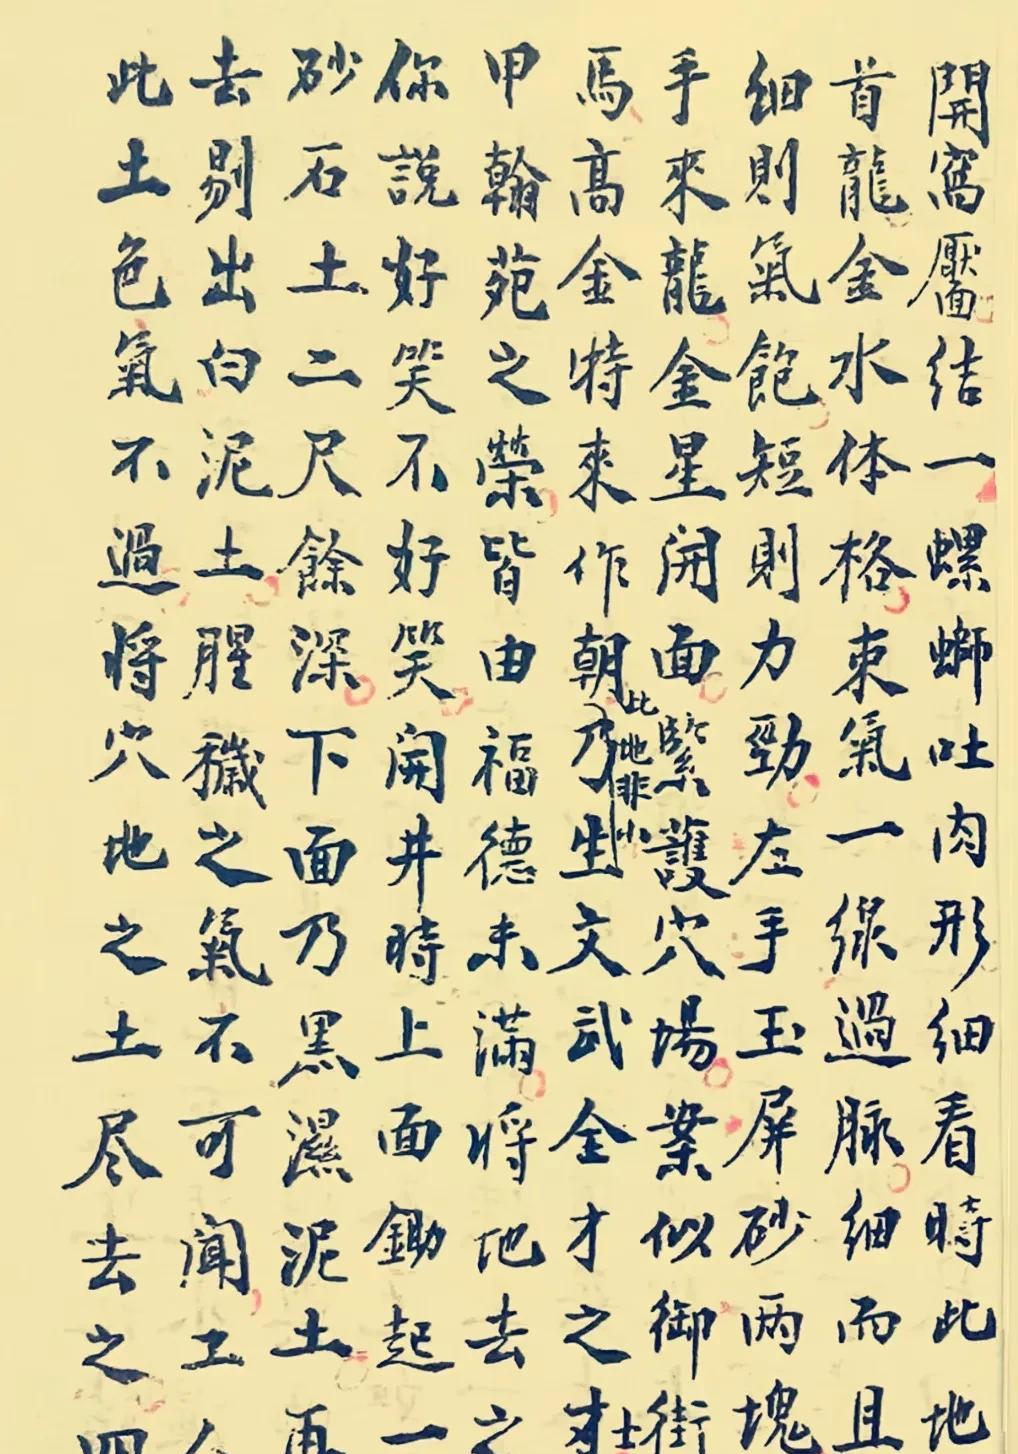 開窩靨結一螺螄吐肉形細看時此地
首龍金水体格束氣一線過脉細而且
細則氣飽短則力勁左手玉屏砂两塊
手來龍金星開面緊護穴場案似御街
馬高金特來作朝乃生文武全才之
此地非小
士
甲翰苑之榮皆由福德未滿将地去之
你説好笑不好笑開井時上面鋤起一
砂石土二尺餘深下面乃黒濕泥土再
去剔出白泥土腥穢之氣不可聞工
此土色氣不過将穴地之土尽去之四